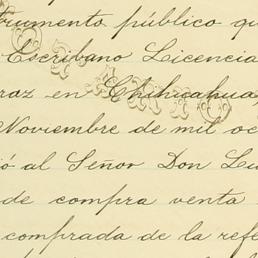 trumento público qu
Escribano Licencia
raz en Chihuahua,
Noviembre de mil oc
ió al Señor Don Lu
de compra venta
comprada de la refe